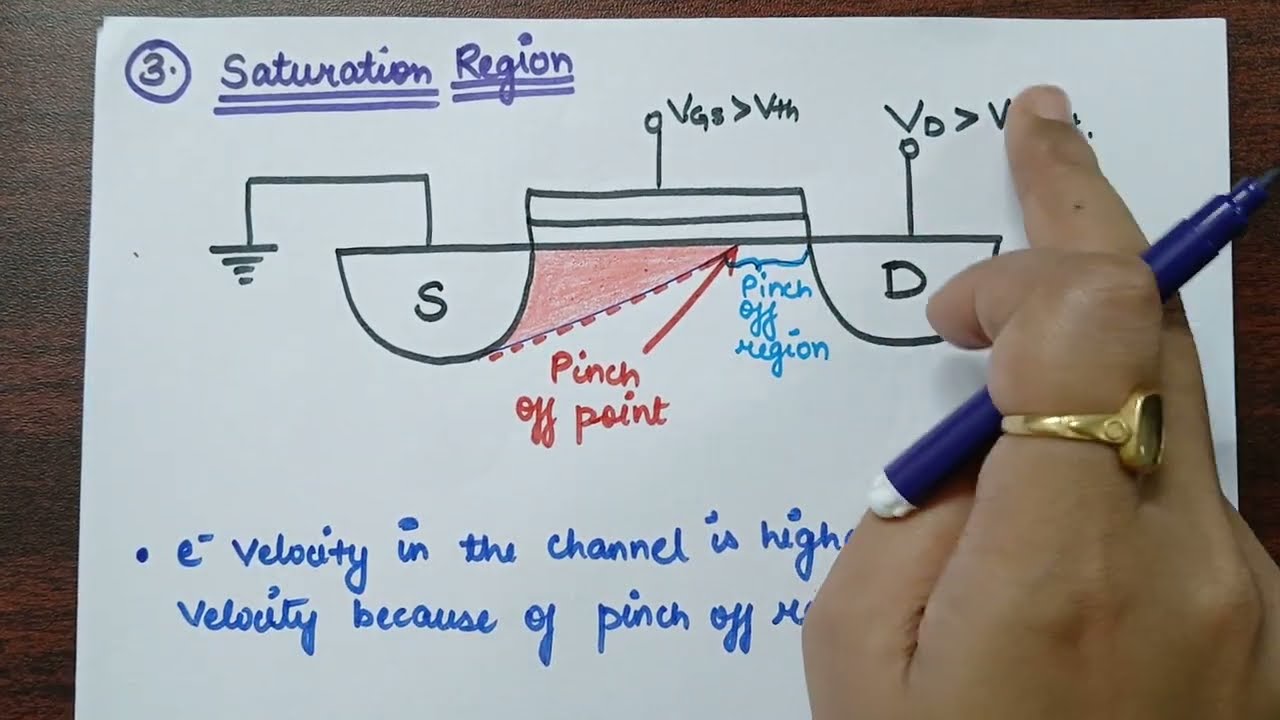 3. Saturation Region
VGS > Vth
VD > V
S
D
Pinch
off
region
Pinch
off point
• e- velocity in the channel is
velocity because of pinch off